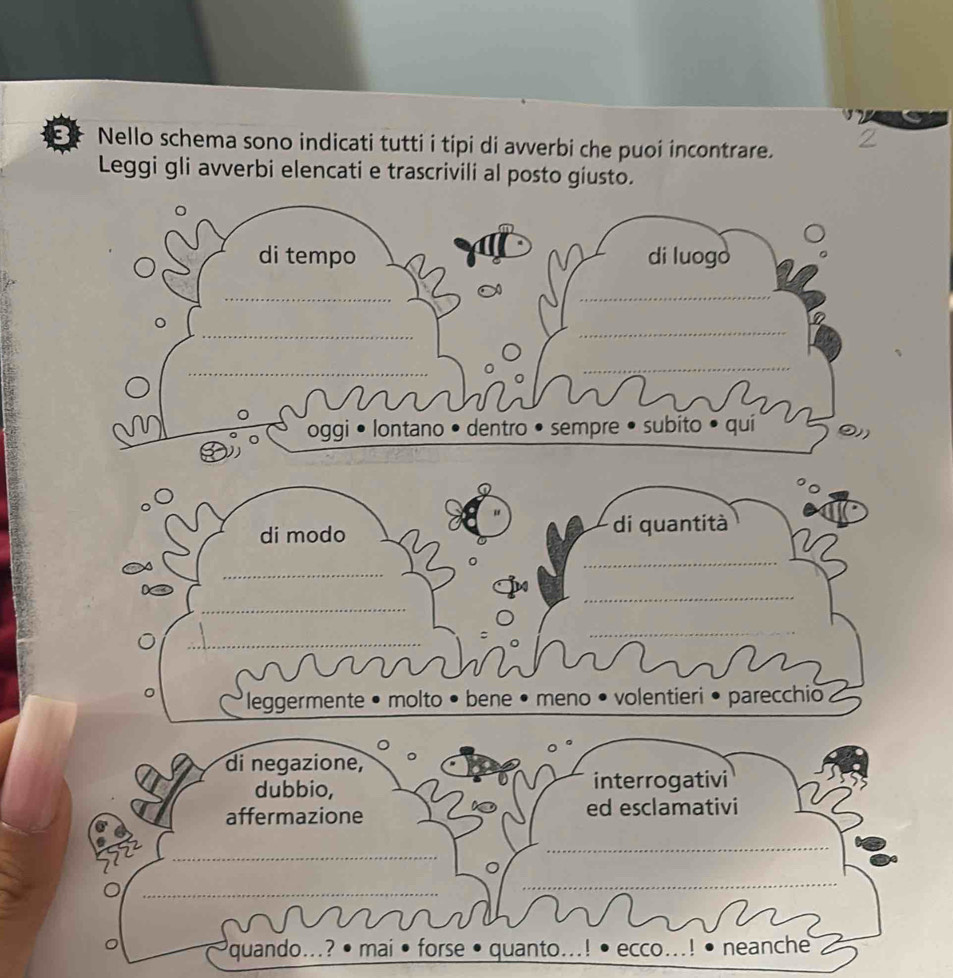 3 Nello schema sono indicati tutti i tipi di avverbi che puoi incontrare.
2
Leggi gli avverbi elencati e trascrivili al posto giusto.
di tempo
di luogo
oggi • lontano • dentro • sempre • subito • qui
di modo
di quantità
leggermente • molto • bene • meno • volentieri • parecchio
di negazione,
dubbio,
affermazione
interrogativi
ed esclamativi
quando...? • mai • forse • quanto...! • ecco...! • neanche